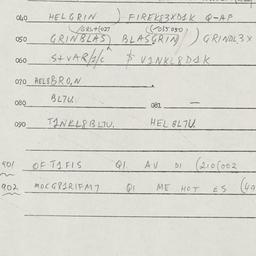 040 HELGRIN ) FIREKE3XD1K Q-AP
050 GRINBLAS BLASGRIN ) GRINDL3X
060 S+VAR/1/C $ V1NKL8D1K
070 HELSBRO,N
080 BL7U. 081 —
090 T1NKL8BL7U. HEL8L7U.
901 OFT1FIS Q1 AV D1 (210(002
902 MOCG81RIFM7 Q1 ME HOT ES (49